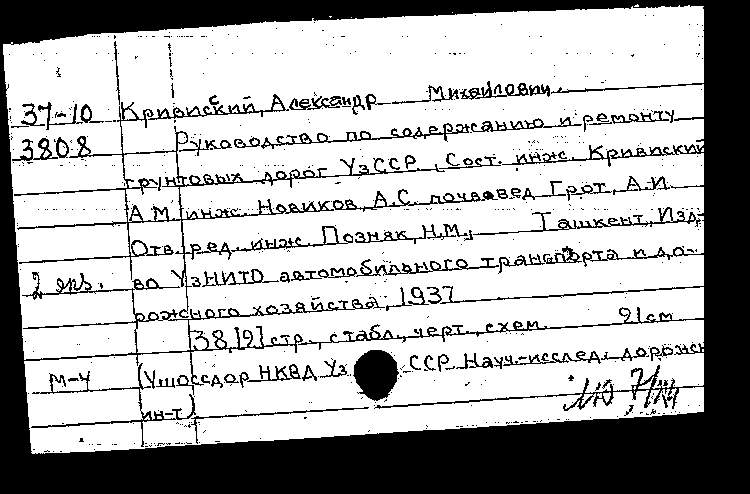 37-10 Кривиский, Александр Михайлович.
3808 Руководство по содержанию и ремонту
грунтовых дорог УзССР, Сост. инж. Кривиский
А.М. инж. Новиков, А.С. почвовед Грот, А.И.
Отв. ред. инж. Позняк, Н.М., Ташкент, Изд-
2 экз. во УзНИТО автомобильного транспорта и до-
рожного хозяйства, 1937
38, [2] стр., с табл., черт., схем. 21 см
М-4 (Ушоссдор НКВД Уз ССР Науч.-исслед. дорожн
ин-т)